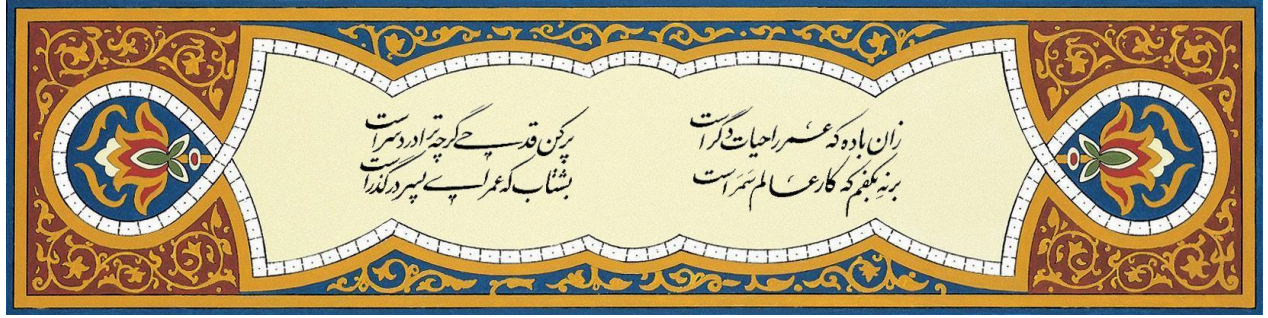 زان باده که عمر را حیات دگر است پر کن قدحی گرچه ترا درد سر است
برنه بکفم که کار عالم سمر است بشتاب که عمر ای پسر در گذر است